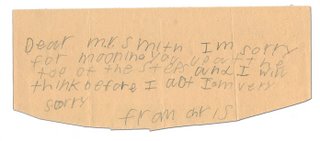 Dear mr smith Im sorry
for mooning you up at the
top of the steps and I will
think before I act I am very
sorry
from chris